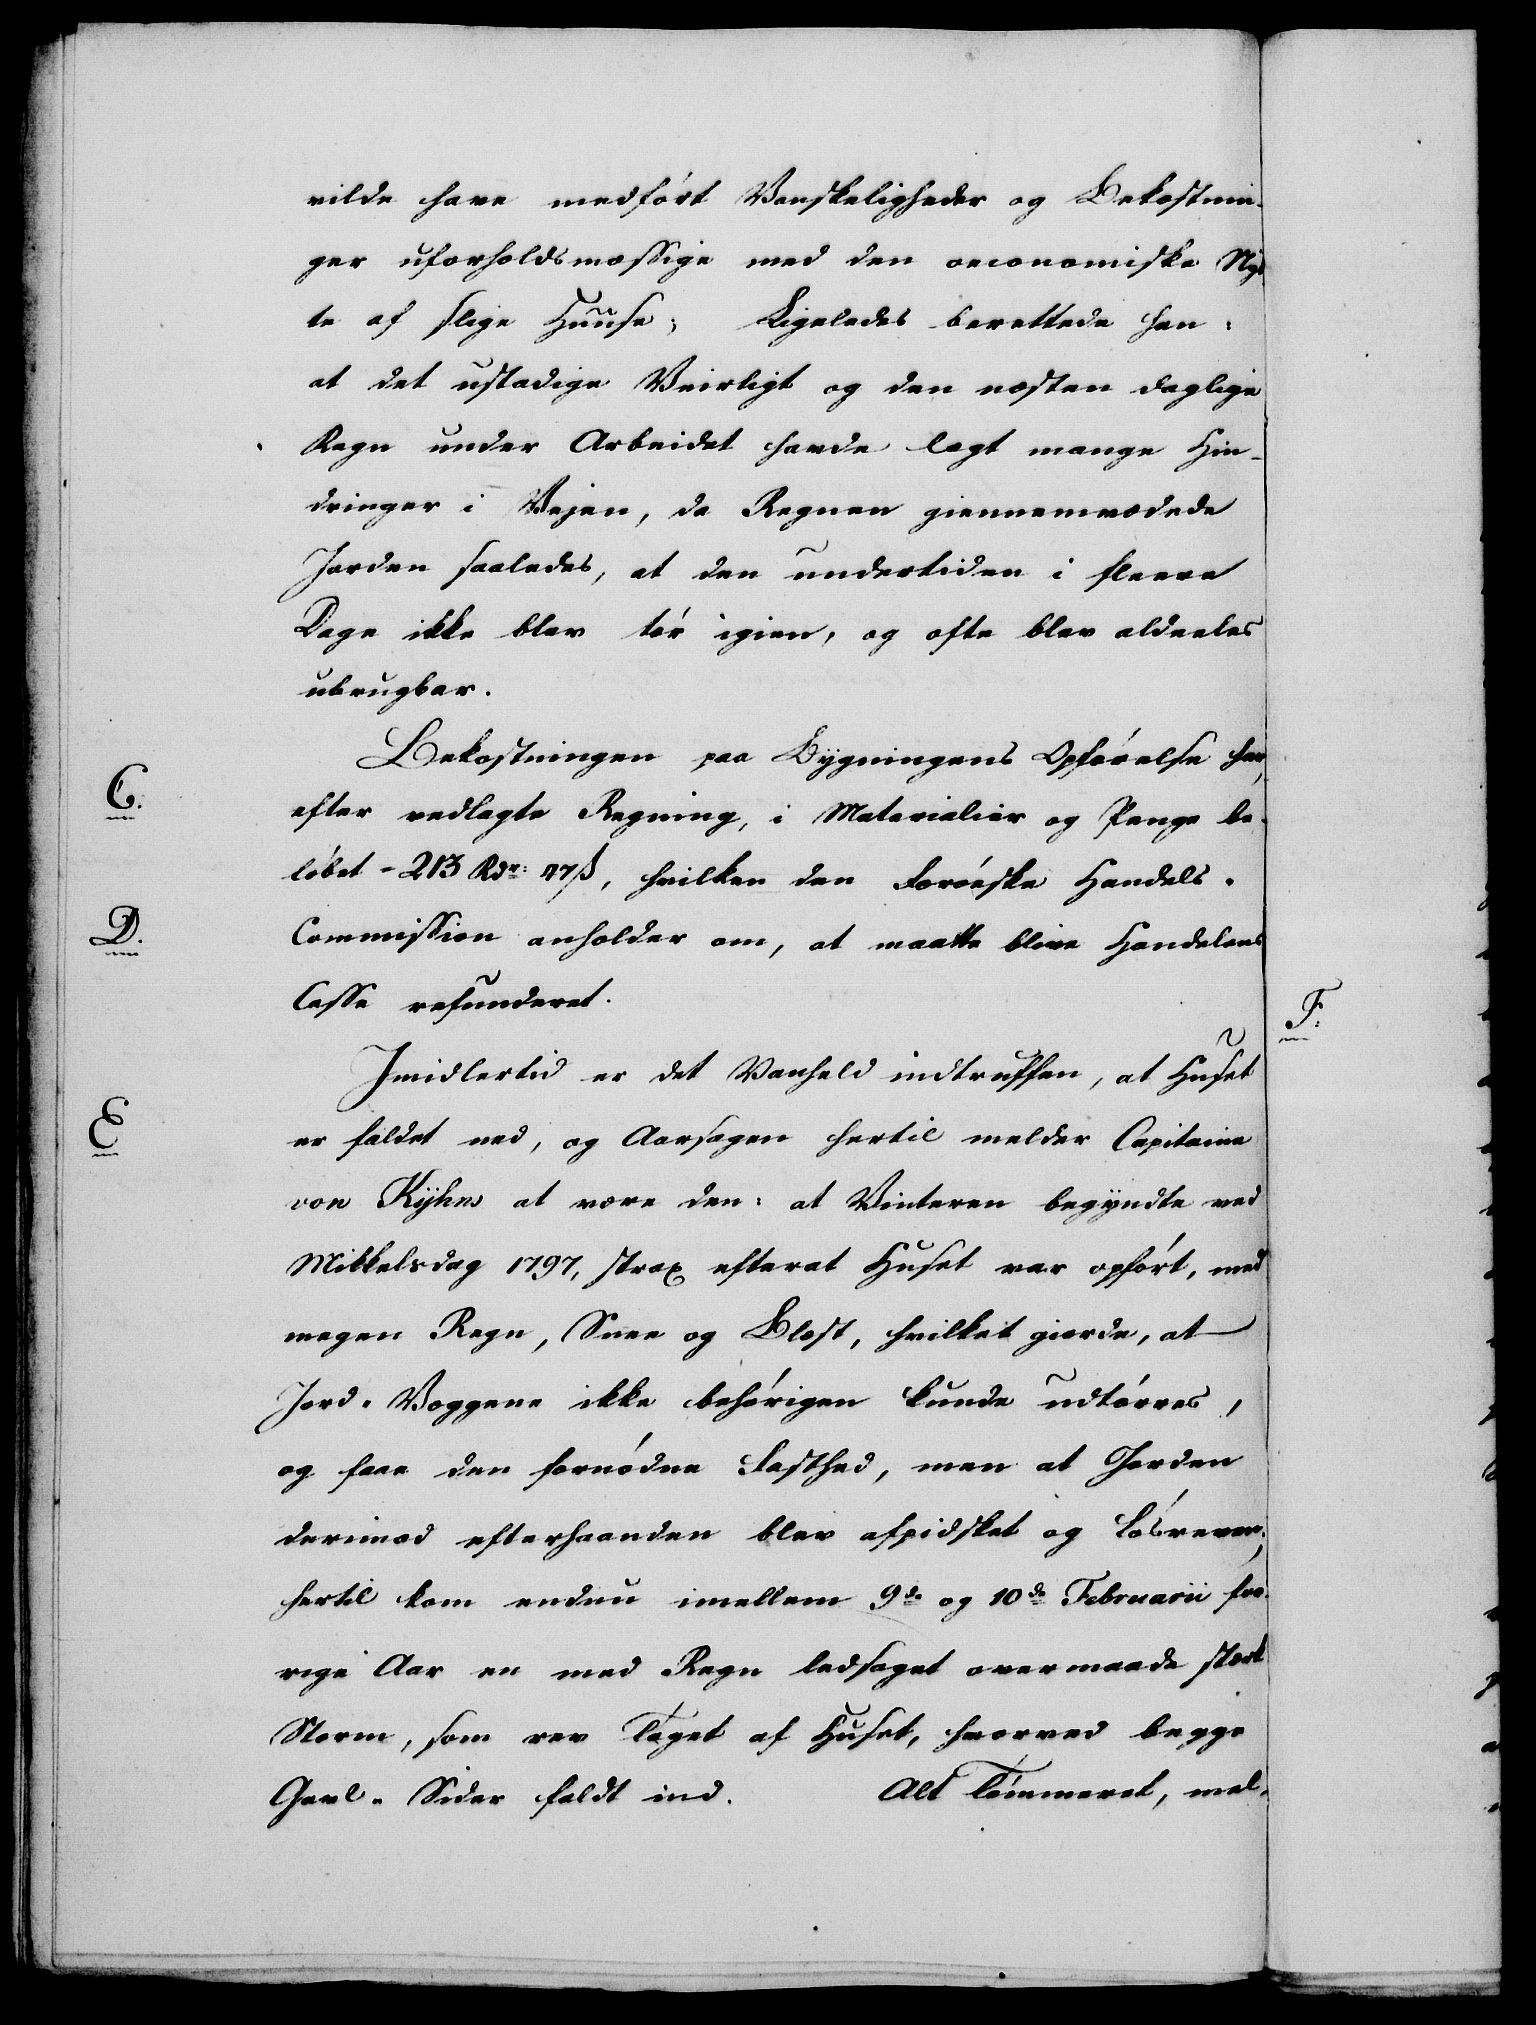 vilde have medført Vanskeligheder og Bekostnin-
ger uforholdsmæssige med den oeconomiske Nyt-
te af slige Huuse; Ligeledes berettede han:
at det ustadige Veirligt og den næsten daglige
Regn under Arbeidet havde lagt mange Hin-
dringer i Vejen, da Regnen giennemvædede
Jorden saaledes, at den undertiden i fleere
Dage ikke blev tør igien, og ofte blev aldeeles
ubrugbar.
Bekostningen paa Bygningens Opførelse har,
C.
efter vedlagte Regning, i Materialier og Penge be-
løbet - 213 Rdr: 47 ß, hvilken den Færøeske Handels-
D.
Commission anholder om, at maatte blive Handelens
Casse refunderet.
F.
Imidlertid er det Vanheld indtruffen, at Huset
E
er faldet ned, og Aarsagen hertil melder Capitaine
von Kyhn at være den: at Vinteren begyndte ved
Mikkelsdag 1797, strax efterat Huset var opført, med
megen Regn, Snee og Blæst, hvilket giorde, at
Jord-Væggene ikke behørigen kunde udtørres,
og faae den fornødne Fasthed, men at Jorden
derimod efterhaanden blev afpidsket og løsreven;
hertil kom endnu imellem 9de og 10de Februarii for-
rige Aar en med Regn ledsaget overmaade stærk
Storm, som rev Taget af Huset, hvorved begge
Gavl-Sider faldt ind. Alt Tømmeret, mel-